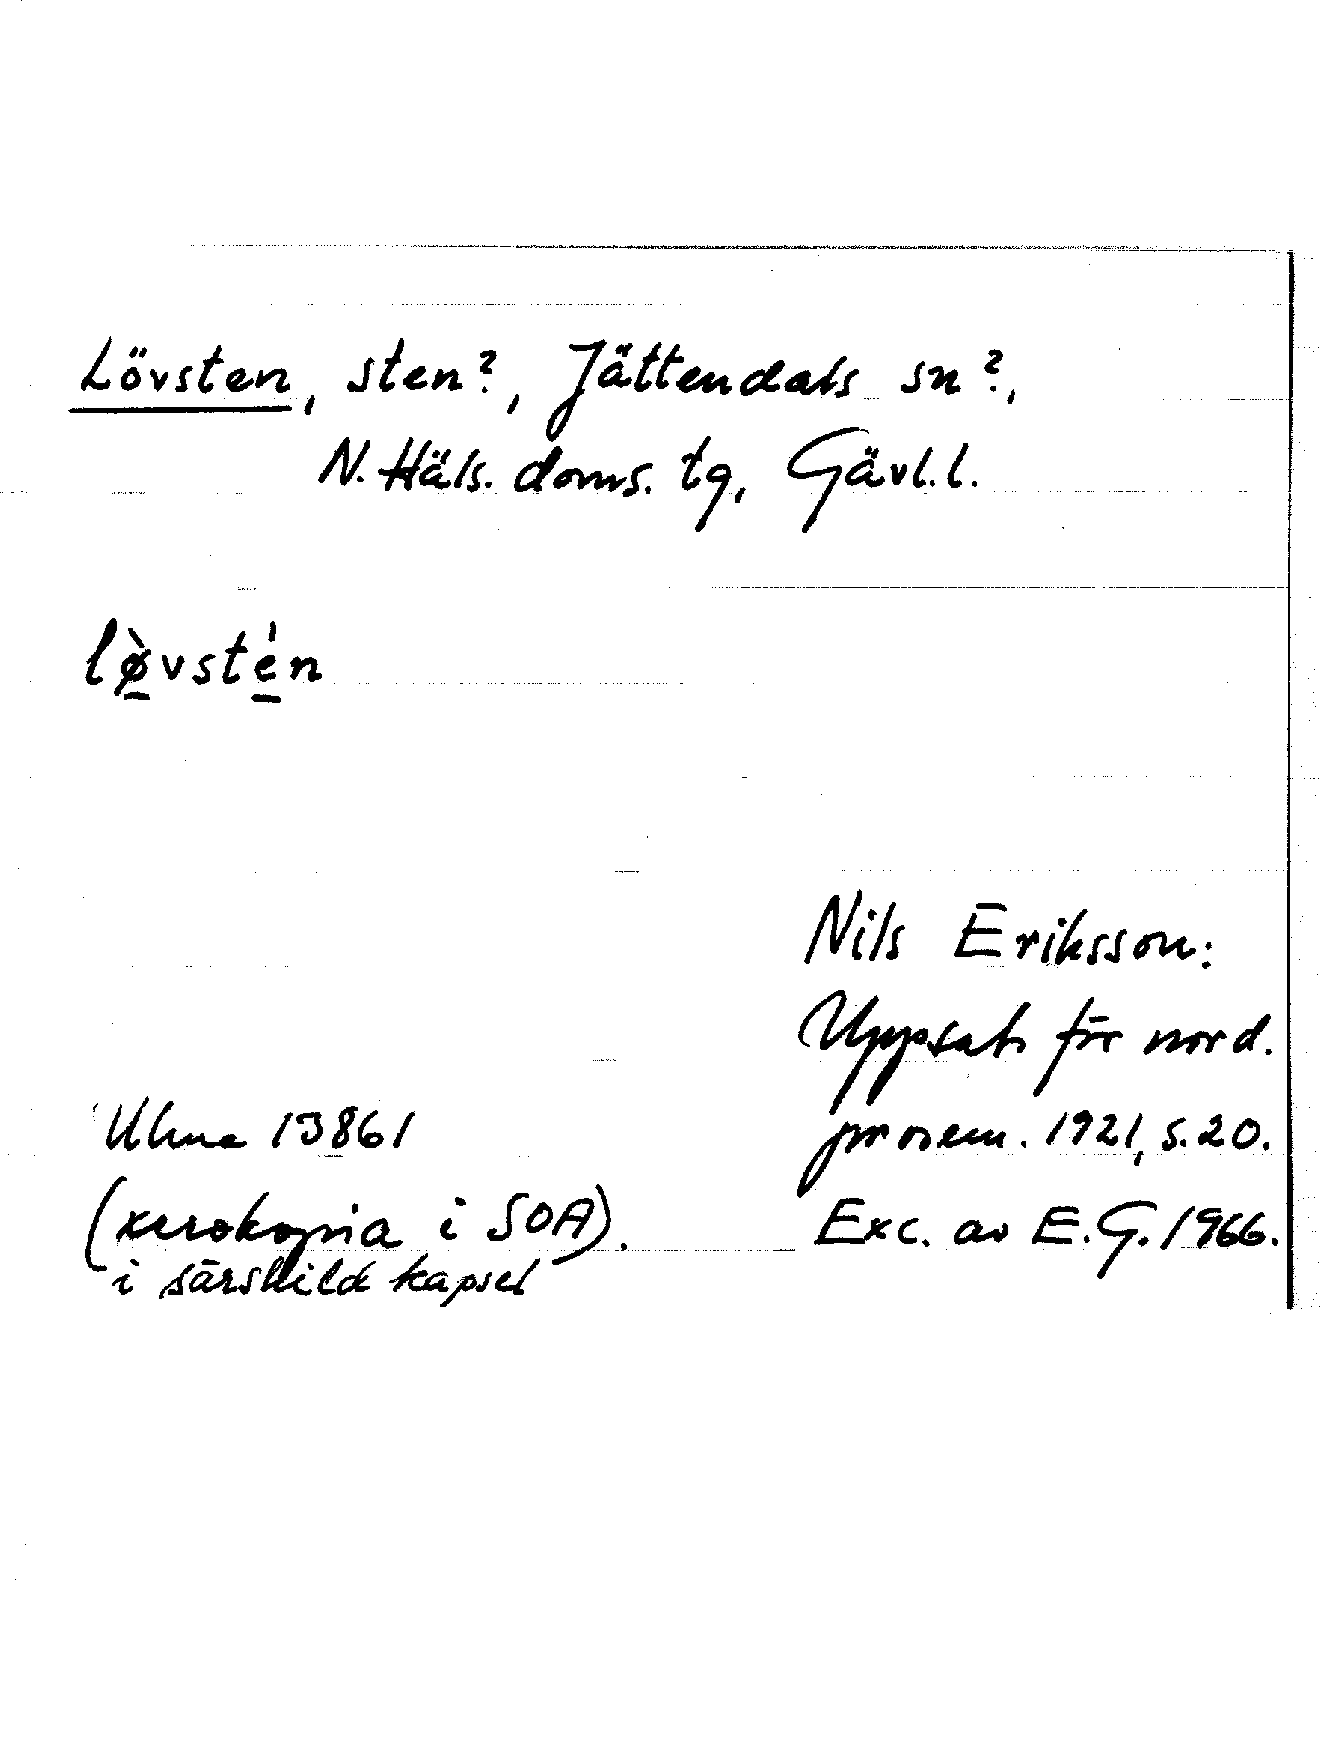 Lövsten, sten?, Jättendals sn?,
N. Häls. doms. tg, Gävl. l.
lø̱̀vsté̱n
Nils Eriksson:
Uppsats för nord.
prosem. 1921, s. 20.
Ulma 13861
(xerokopia i SOA).
i särskild kapsel
Exc. av E.G. 1966.